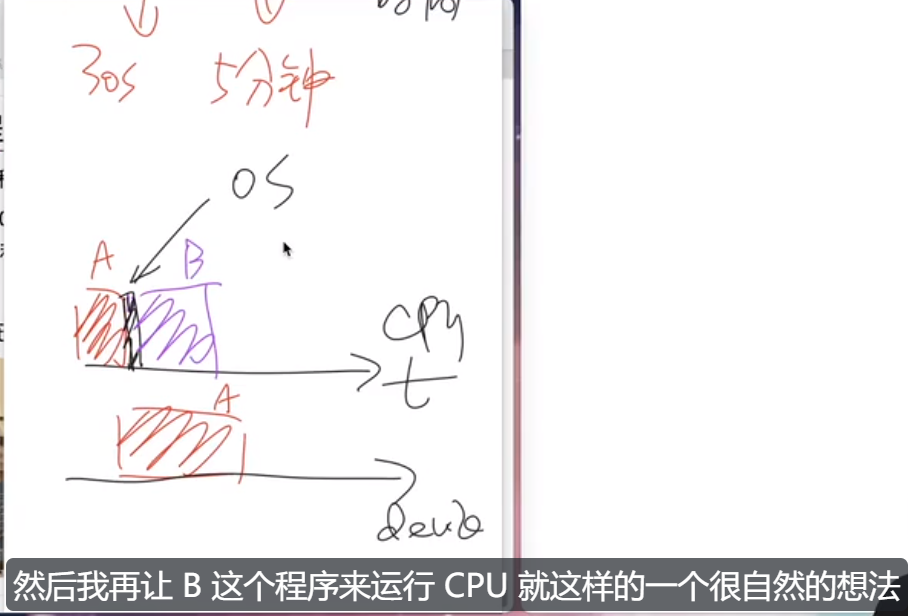 30s 5分钟
OS
A B
CPU
t
A
device
然后我再让 B 这个程序来运行 CPU 就这样的一个很自然的想法